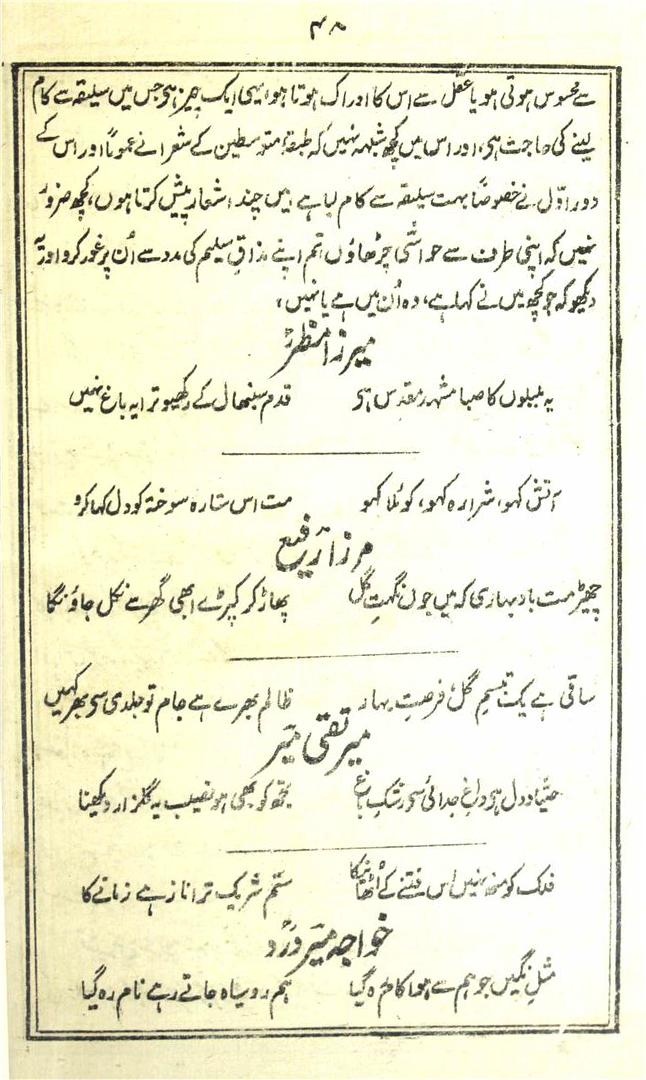 ۴۸
سے محسوس ہوتی ہو یا عقل سے اس کا ادراک ہوتا ہو ایسی ایک چیز ہی جس میں سلیقہ سے کام
لینے کی حاجت ہی، اور اس میں کچھ شبہہ نہیں کہ طبقۂ متوسطین کے شعرا نے عموماً اور اس کے
دور اوّل نے خصوصاً بہت سلیقہ سے کام لیا ہے میں چند اشعار پیش کرتا ہوں، کچھ ضرور
نہیں کہ اپنی طرف سے حواشی چڑھاؤں تم اپنے مذاق سلیم کی مدد سے اُن پر غور کرو اور یہ
دیکھو کہ جو کچھ میں نے کہا ہے، وہ اُن میں ہے یا نہیں،
میرزا مظہرؔ
یہ بلبلوں کا صبا مشہد مقدس ہی قدم سنبھال کے رکھیو ترا یہ باغ نہیں
آتش کہو، شرارہ کہو، کوئلا کہو مت اس ستارہ سوختہ کو دل کہا کرو
مرزا رفیع
چھیڑ مت باد بہاری کہ میں جوں نگہتِ گل پھاڑ کر کپڑے ابھی گھر سے نکل جاؤنگا
ساقی ہے یک تبسمِ گل، فرصتِ بہار ظالم بھرے ہے جام تو جلدی سی بھر کہیں
میر تقی میرؔ
صیّاد دل ہی داغِ جدائی سی رشکِ باغ تجھ کو بھی ہو نصیب یہ گلزار دیکھنا
فلک کو منھ نہیں اس فتنے کے اُٹھانیکا ستم شریک ترا ناز ہے زمانے کا
خواجہ میر دردؔ
مثلِ نگیں جو ہم سے ہوا کام رہ گیا ہم رو سیاہ جاتے رہے نام رہ گیا